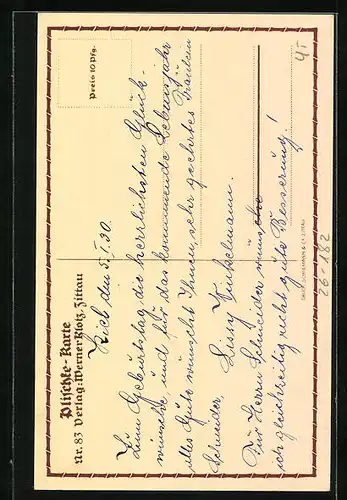 Plischke-Karte
Nr. 83 Verlag: Werner Klotz, Zittau
Preis 10 Pfg.
den 5.I.30.
Zum Geburtstag die herzlichsten Glück-
wünsche und für das kommende Lebensjahr
alles Gute wünscht Ihnen, sehr geehrtes Fräulein
Schneider,
Lissy Winkelmann.
Für Herrn Schneider wünsche
ich gleichzeitig recht gute Besserung!
26-182